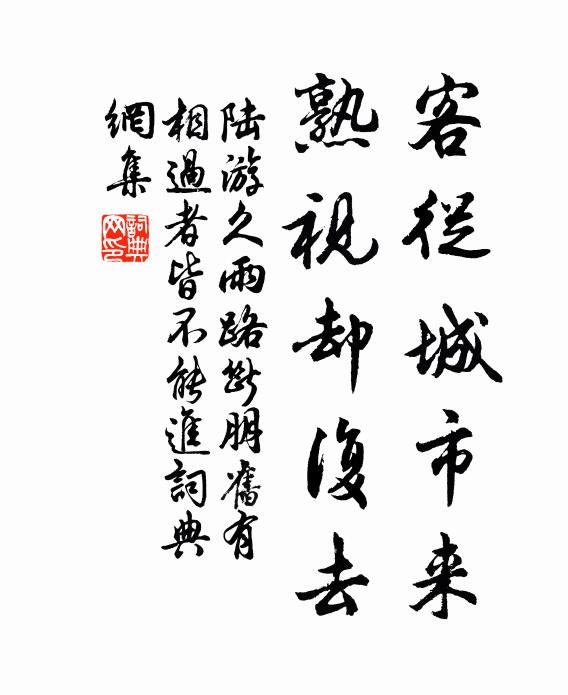 客從城市来
熟視却復去
陆游久雨路斷朋舊有
相過者皆不能進詞典
網集
詞典网印